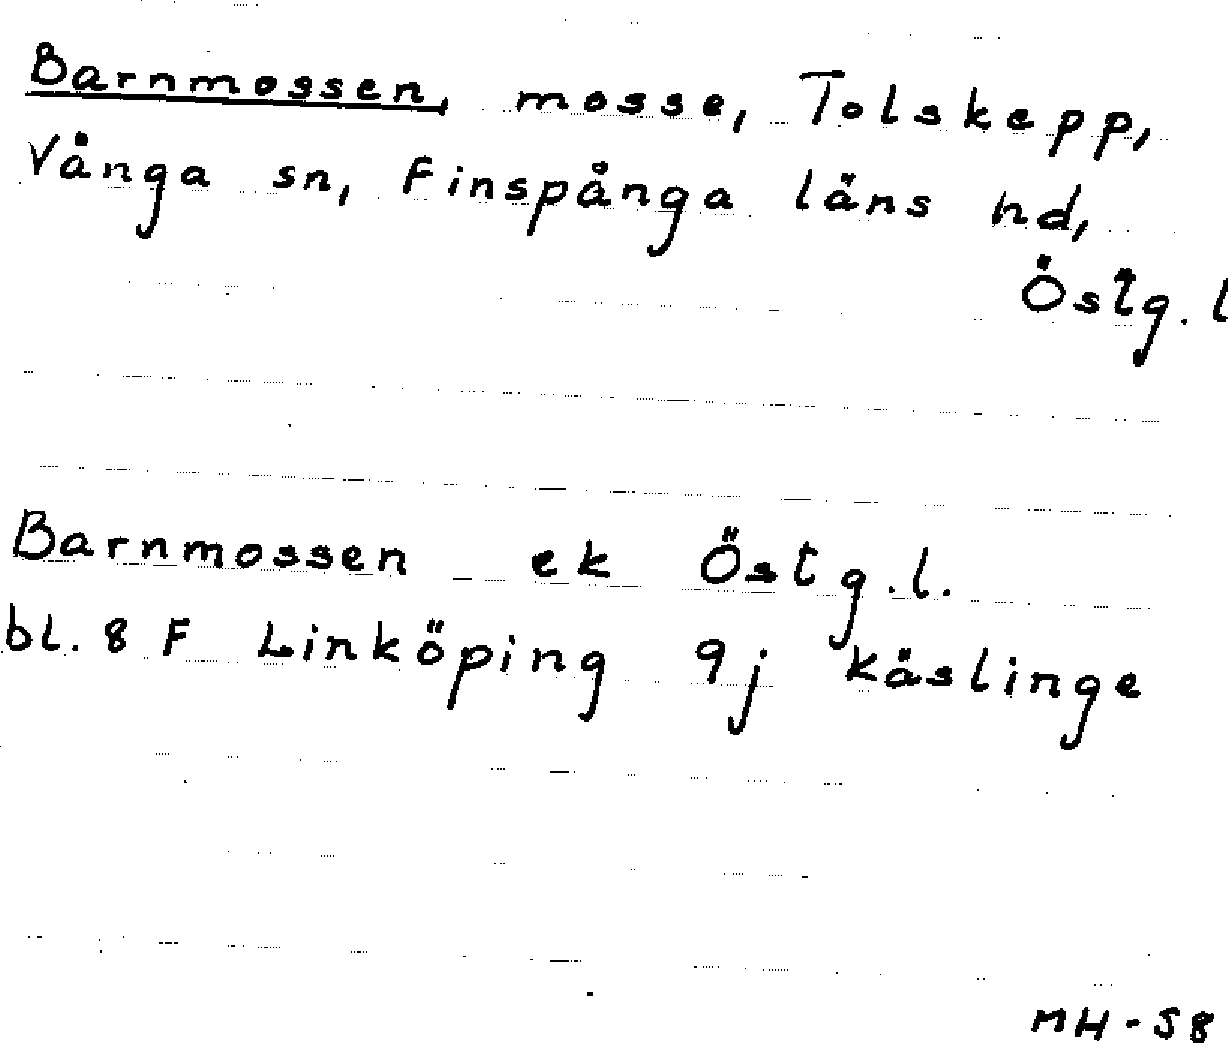 Barnmossen, mosse, Tolskepp,
Vånga sn, Finspånga läns hd,
Östg. l
Barnmossen ek Östg.l.
bl. 8 F Linköping 9j Käslinge
MH-58